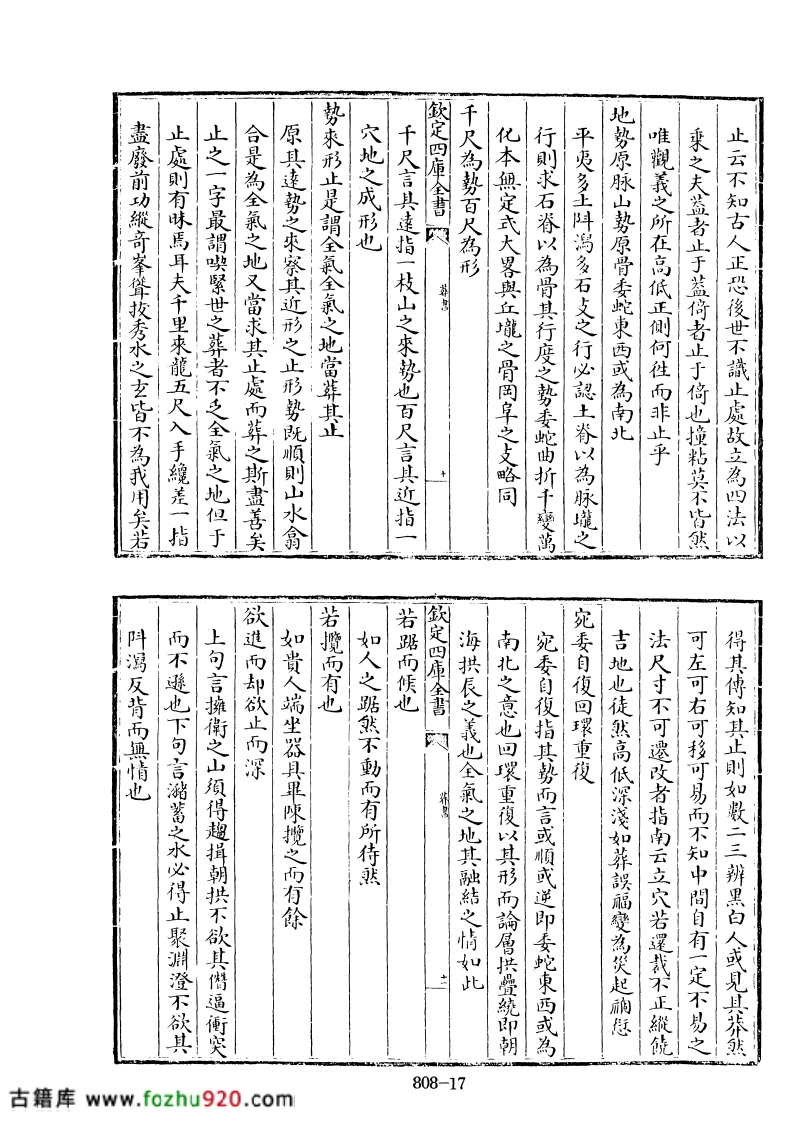 止云不知古人正恐後世不識止處故立為四法以
乗之夫葢者止于葢倚者止于倚也撞粘莫不皆然
唯觀義之所在高低正側何往而非止乎
地勢原脉山勢原骨委蛇東西或為南北
平夷多土陡瀉多石支之行必認土脊以為脉壠之
行則求石脊以為骨其行度之勢委蛇曲折千變萬
化本無定式大畧與丘壠之骨岡阜之支略同
千尺為勢百尺為形
欽定四庫全書
葬書
十
千尺言其遠指一枝山之來勢也百尺言其近指一
穴地之成形也
勢來形止是謂全氣全氣之地當葬其止
原其逺勢之來察其近形之止形勢既順則山水翕
合是為全氣之地又當求其止處而葬之斯盡善矣
止之一字最謂喫緊世之葬者不乏全氣之地但于
止處則有昧焉耳夫千里來龍五尺入手纔差一指
盡廢前功縱奇峯聳拔秀水之玄皆不為我用矣若
得其傳知其止則如數二三辨黑白人或見其莽然
可左可右可移可易而不知中間自有一定不易之
法尺寸不可遷改者指南云立穴若還裁不正縱饒
吉地也徒然高低深淺如葬誤福變為災起禍愆
宛委自復回環重復
宛委自復指其勢而言或順或逆即委蛇東西或為
南北之意也回環重復以其形而論層拱疊繞即朝
海拱辰之義也全氣之地其融結之情如此
欽定四庫全書
葬書
十一
若踞而候也
如人之踞然不動而有所待然
若攬而有也
如貴人端坐器具畢陳攬之而有餘
欲進而却欲止而深
上句言擁衛之山須得趨揖朝拱不欲其僭逼衝突
而不遜也下句言瀦蓄之水必得止聚淵澄不欲其
陡瀉反背而無情也
808-17
古籍库 www.fozhu920.com